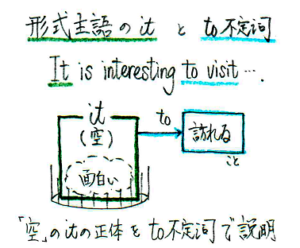 形式主語のitとto不定詞
It is interesting to visit….
it
(空)
面白い
to
訪れる
こと
「空」のitの正体をto不定詞で説明